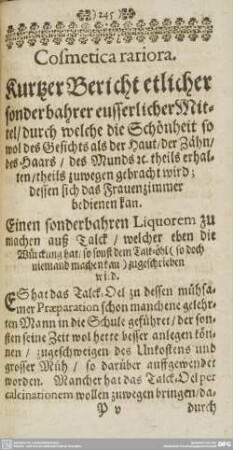 245
Cosmetica rariora.
Kurtzer Bericht etlicher
sonderbahrer eusserlicher Mit-
tel/ durch welche die Schönheit so
wol des Gesichts als der Haut/ der Zähn/
des Haars/ des Munds ꝛc. theils erhal-
ten/ theils zuwegen gebracht wird;
dessen sich das Frauenzimmer
bedienen kan.
Einen sonderbahren Liquorem zu
machen auß Talck/ welcher eben die
Würckung hat/ so sonst dem Talk-öhl( so doch
niemand machen kan) zugeschrieben
wird.
ES hat das Talck-Oel zu dessen mühsa-
mer Præparation schon manchene gelehr-
ten Mann in die Schule geführet/ der son-
sten seine Zeit wol hette besser anlegen kön-
nen/ zugeschweigen des Unkostens und
grosser Müh/ so darüber auffgewendet
worden. Mancher hat das Talck-Oel per
calcinationem wollen zuwegen bringen/ da-
P v durch